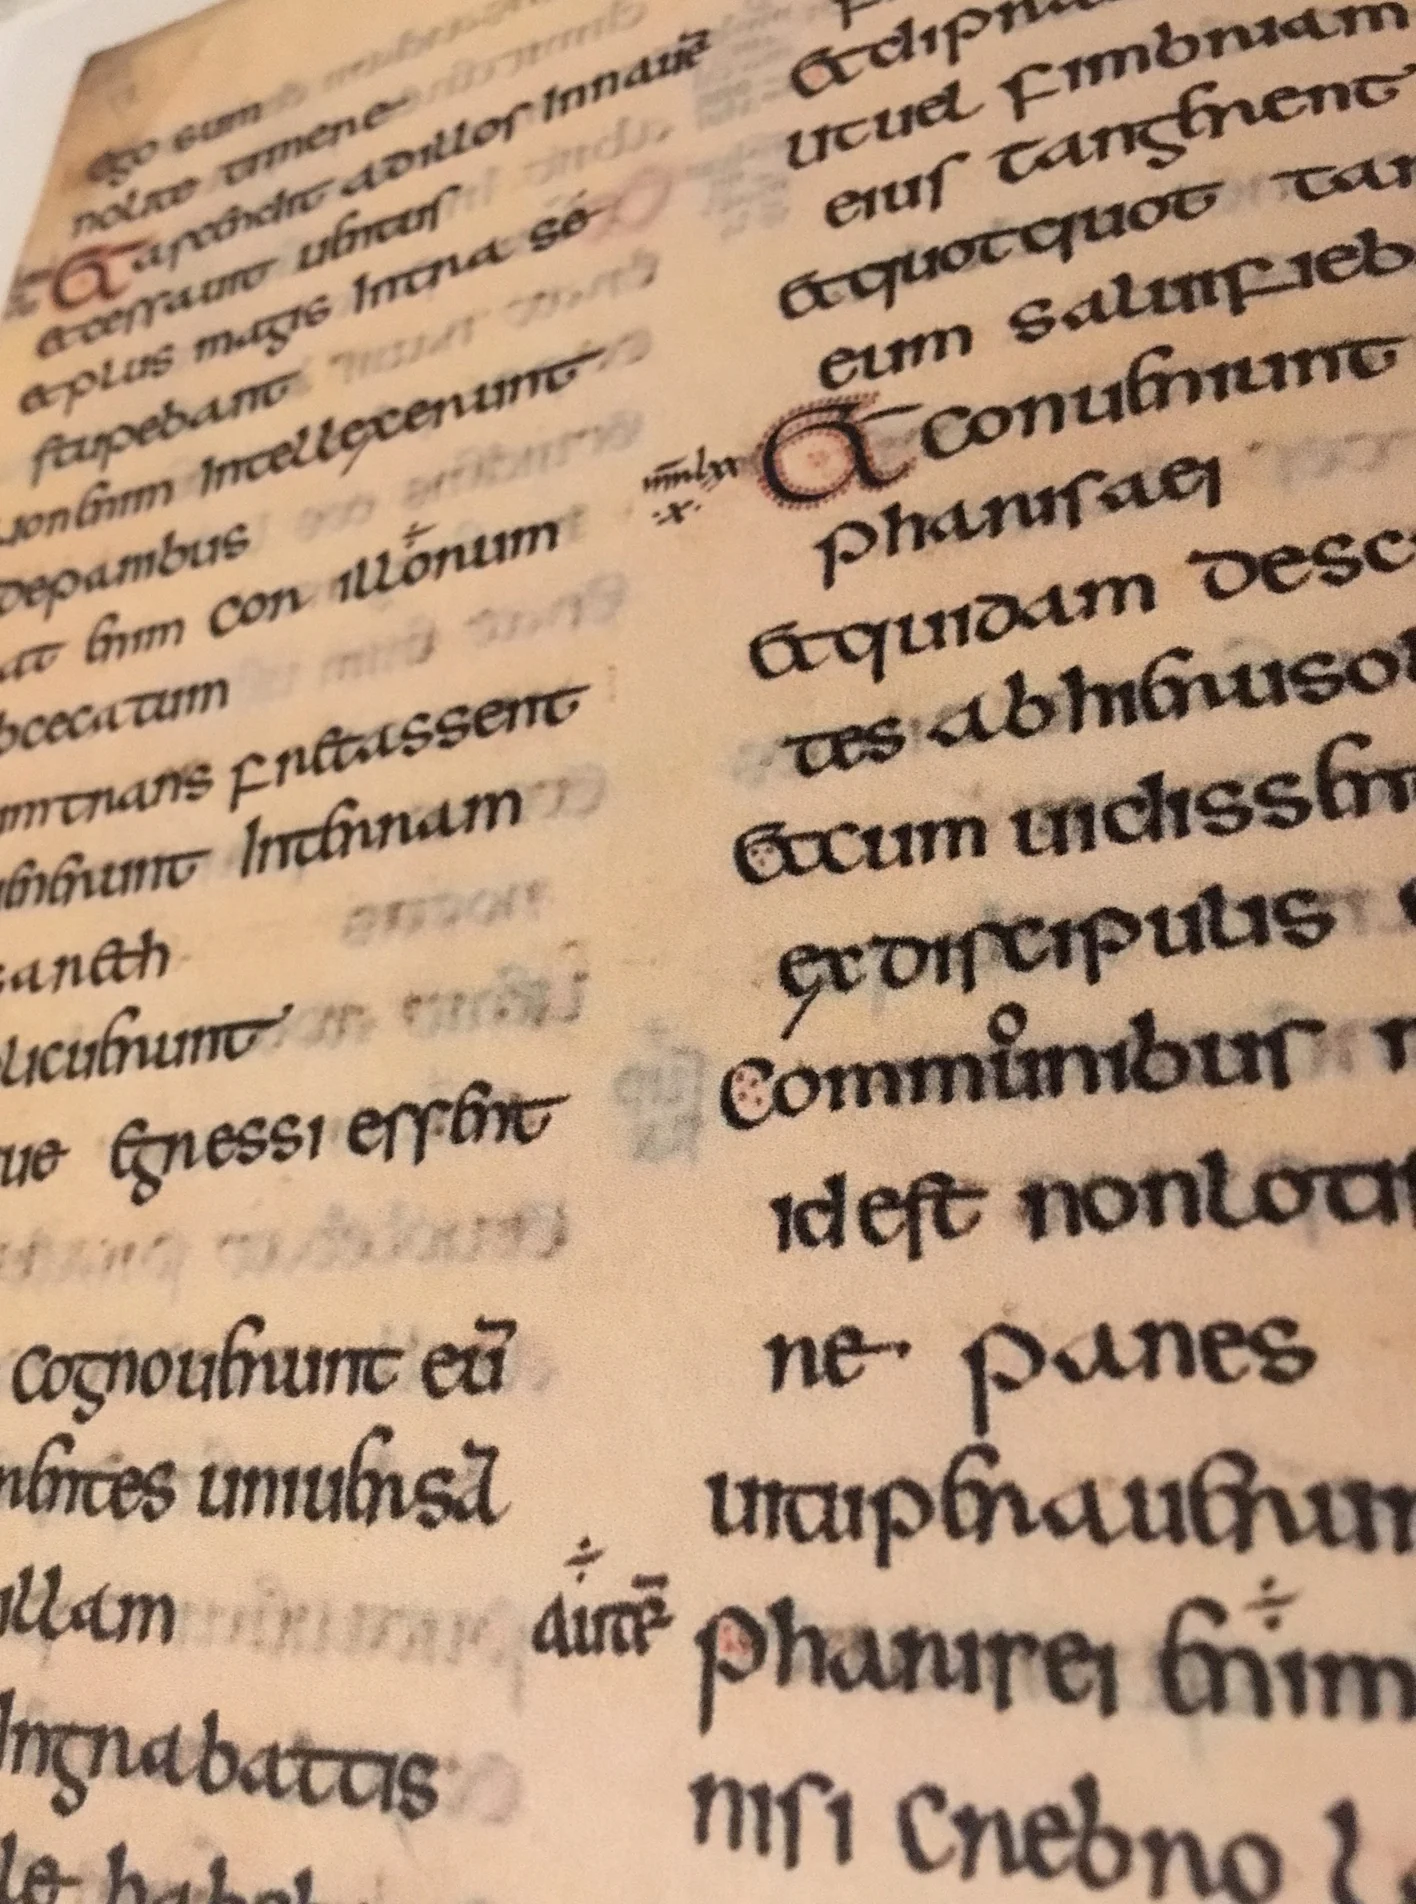 ego sum
nolite timere
Et ascendit ad illos in naue
et cessauit uentus
et plus magis intra se
stupebant
non enim intellexerunt
de panibus
at enim cor illorum
bcecatum
frans fretassent
uenerunt in terram
saneth
plicuerunt
ue egressi essent
cognouerunt eū
rentes uniuersā
illam
in grabattis
le habe
et dipr
ut uel fimbriam
eius tangerent
et quotquot tan
eum salui fieb
mr lxx
x
Et conueniunt
pharisaei
et quidam desc
tes ab hierusol
et cum uidissent
ex discipulis
communibus
id est non lotis
ne panes
uituperauerun
autē
pharisei enim
nisi crebro l